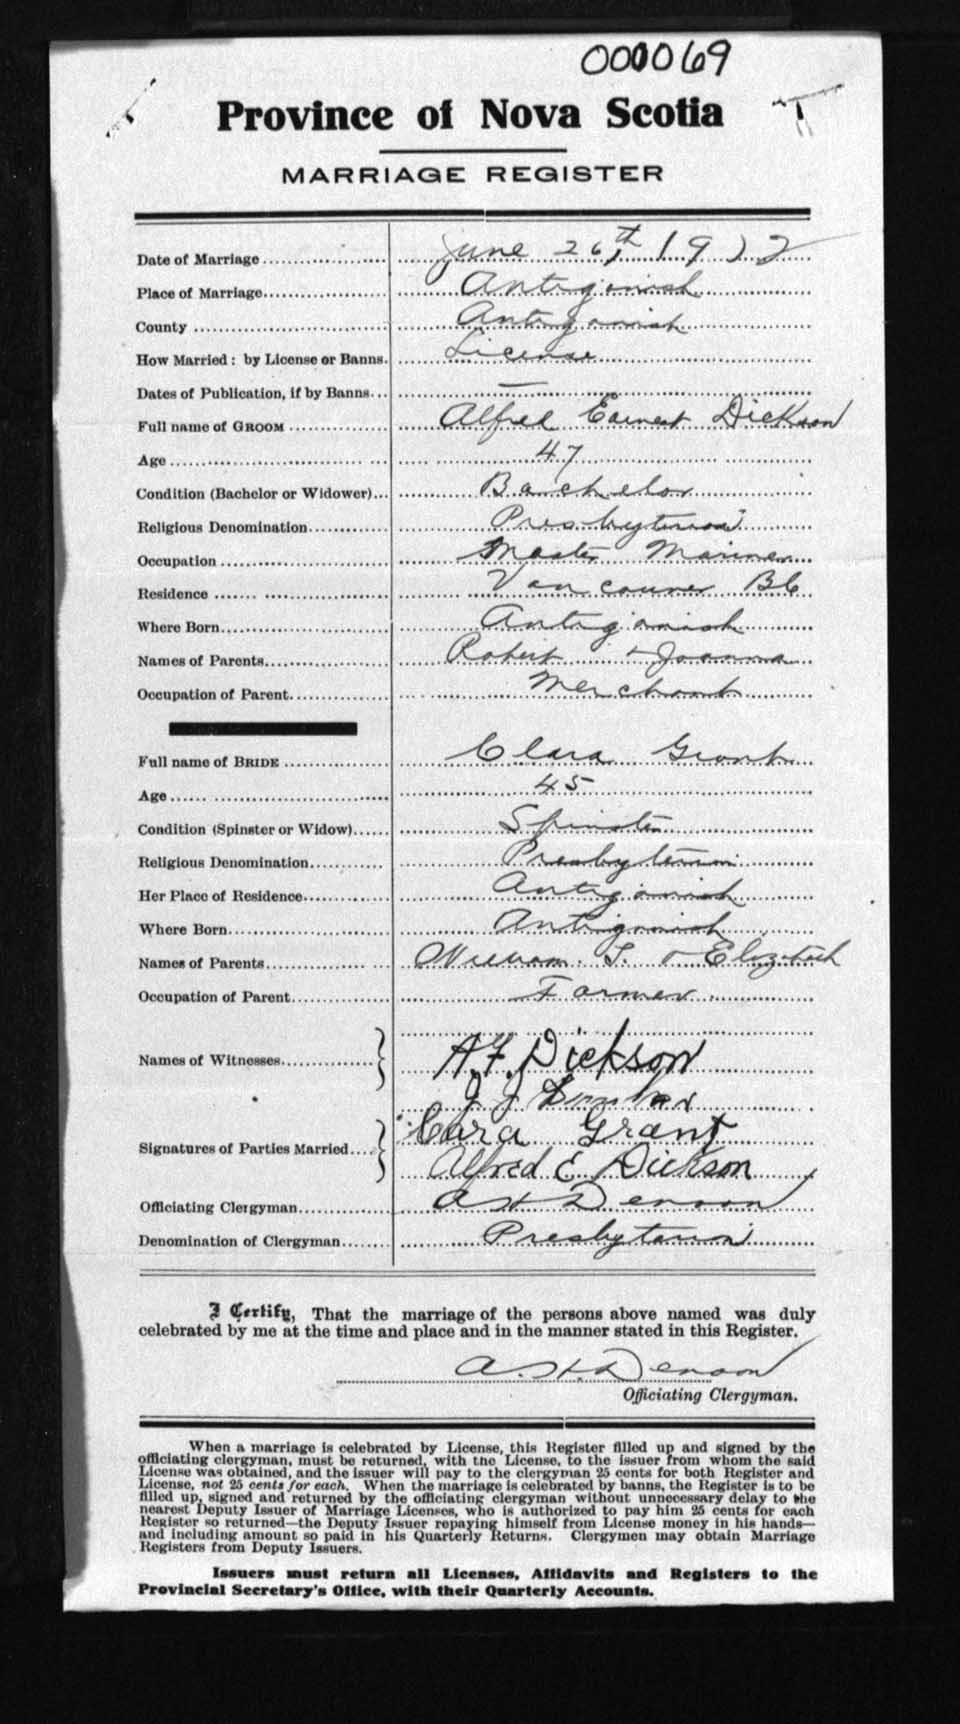 000069
Province of Nova Scotia
MARRIAGE REGISTER
Date of Marriage June 26th, 1912
Place of Marriage Antigonish
County Antigonish
How Married: by License or Banns. License
Dates of Publication, if by Banns —
Full name of GROOM Alfred Earnest Dickson
Age 47
Condition (Bachelor or Widower) Bachelor
Religious Denomination Presbyterian
Occupation Master Mariner
Residence Vancouver BC
Where Born Antigonish
Names of Parents Robert + Joanna
Occupation of Parent Merchant
Full name of BRIDE Clara Grant
Age 45
Condition (Spinster or Widow) Spinster
Religious Denomination Presbyterian
Her Place of Residence Antigonish
Where Born Antigonish
Names of Parents William + Elizabeth
Occupation of Parent Farmer
Names of Witnesses A.F. Dickson
J J
Signatures of Parties Married Clara Grant
Alfred E Dickson
Officiating Clergyman A H Denoon
Denomination of Clergyman Presbyterian
I Certify, That the marriage of the persons above named was duly
celebrated by me at the time and place and in the manner stated in this Register.
A. H. Denoon
Officiating Clergyman.
When a marriage is celebrated by License, this Register filled up and signed by the
officiating clergyman, must be returned, with the License, to the issuer from whom the said
License was obtained, and the issuer will pay to the clergyman 25 cents for both Register and
License, not 25 cents for each. When the marriage is celebrated by banns, the Register is to be
filled up, signed and returned by the officiating clergyman without unnecessary delay to the
nearest Deputy Issuer of Marriage Licenses, who is authorized to pay him 25 cents for each
Register so returned—the Deputy Issuer repaying himself from License money in his hands—
and including amount so paid in his Quarterly Returns. Clergymen may obtain Marriage
Registers from Deputy Issuers.
Issuers must return all Licenses, Affidavits and Registers to the
Provincial Secretary's Office, with their Quarterly Accounts.